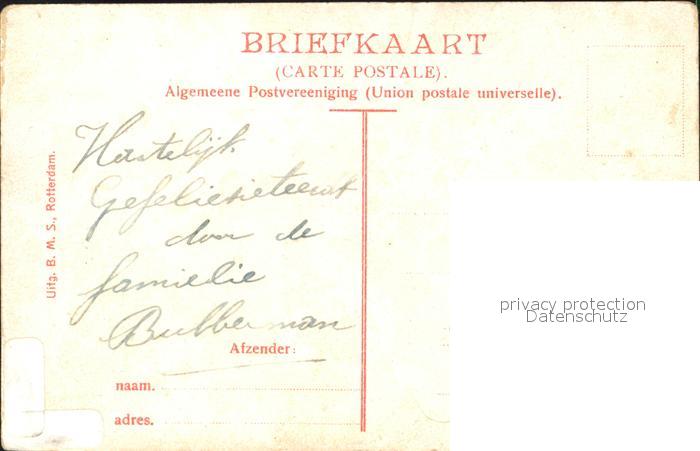 BRIEFKAART
(CARTE POSTALE).
Algemeene Postvereeniging (Union postale universelle).
Uitg. B. M. S., Rotterdam.
Hartelijk
Gefelicieteerd
door de
familie
Bubberman
Afzender:
naam.
adres.
privacy protection
Datenschutz